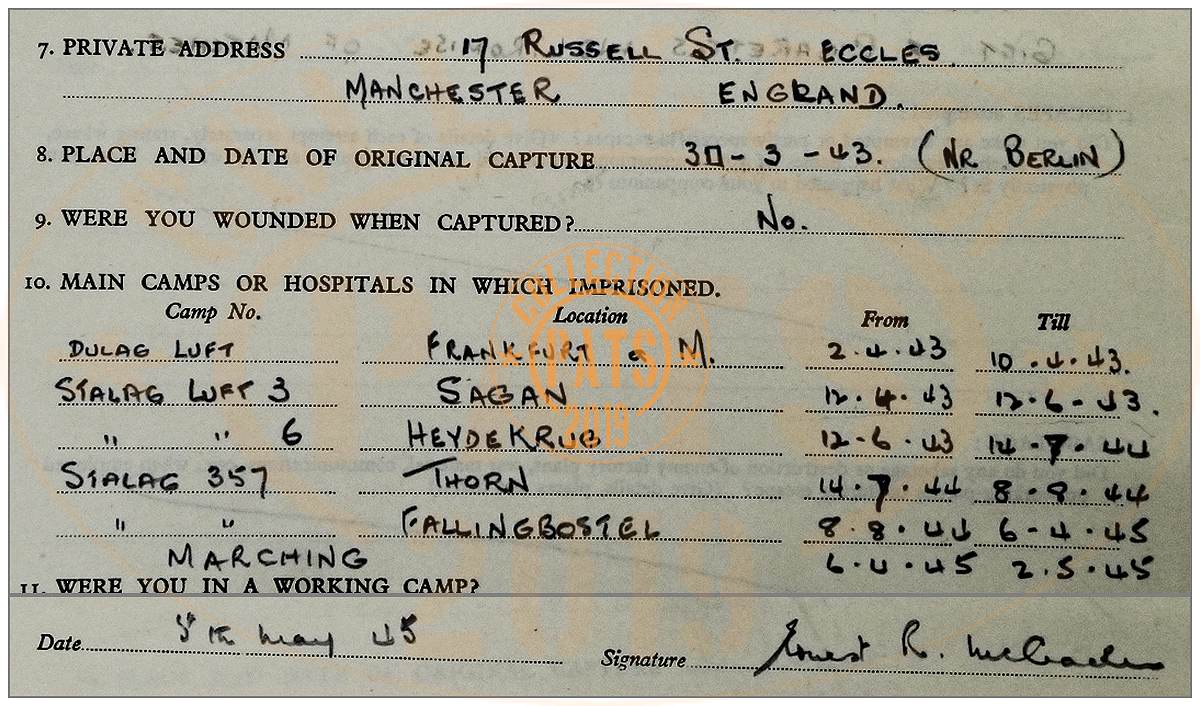 7. PRIVATE ADDRESS 17 RUSSELL ST. ECCLES
MANCHESTER ENGRAND.
8. PLACE AND DATE OF ORIGINAL CAPTURE 30-3-43. (NR BERLIN)
9. WERE YOU WOUNDED WHEN CAPTURED? No.
10. MAIN CAMPS OR HOSPITALS IN WHICH IMPRISONED.
Camp No. Location From Till
DULAG LUFT FRANKFURT a M. 2.4.43 10.4.43.
STALAG LUFT 3 SAGAN 12.4.43 12.6-43.
" " 6 HEYDEKRUG 12-6.43 14.7.44
STALAG 357 THORN 14.7.44 8.8.44
" " FALLINGBOSTEL 8.8.44 6-4.45
MARCHING 6.4.45 2.5.45
11. WERE YOU IN A WORKING CAMP?
Date 5th May 45 Signature Ernest R.
COLLECTION
PATS
2019